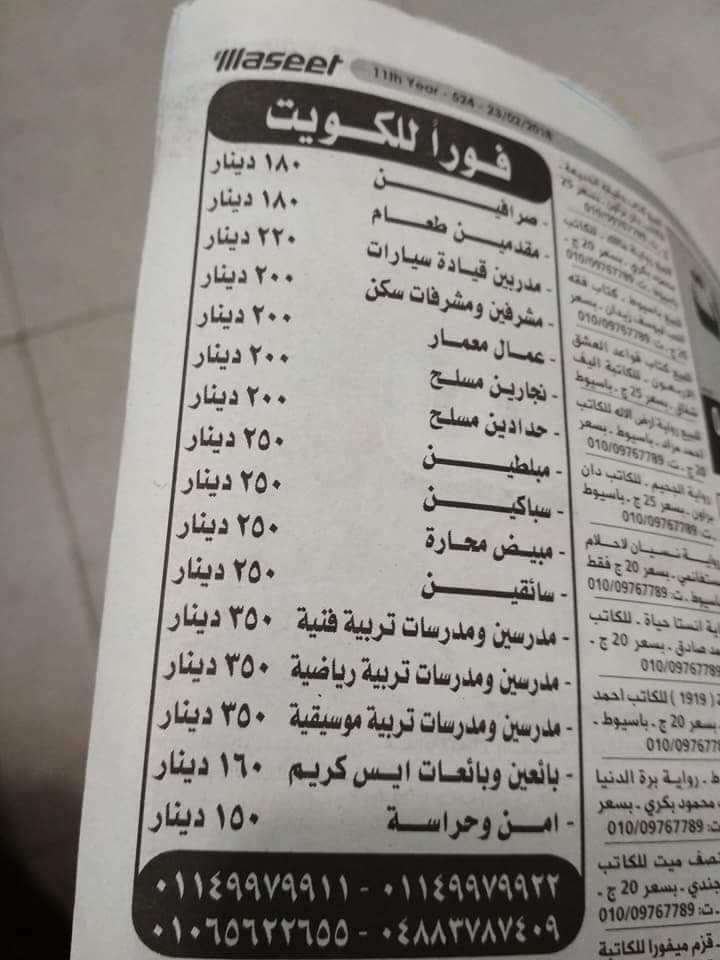 Waseet
11th Year - 524 - 23/02/2018
فوراً للكويت
- صرافين ١٨٠ دينار
- مقدمين طعام ١٨٠ دينار
- مدربين قيادة سيارات ٢٢٠ دينار
- مشرفين ومشرفات سكن ٢٠٠ دينار
- عمال معمار ٢٠٠ دينار
- نجارين مسلح ٢٠٠ دينار
- حدادين مسلح ٢٠٠ دينار
- مبلطين ٢٥٠ دينار
- سباكين ٢٥٠ دينار
- مبيض محارة ٢٥٠ دينار
- سائقين ٢٥٠ دينار
- مدرسين ومدرسات تربية فنية ٣٥٠ دينار
- مدرسين ومدرسات تربية رياضية ٣٥٠ دينار
- مدرسين ومدرسات تربية موسيقية ٣٥٠ دينار
- بائعين وبائعات ايس كريم ١٦٠ دينار
- امن وحراسة ١٥٠ دينار
٠١١٤٩٩٧٩٩٢٢ - ٠١١٤٩٩٧٩٩١١
٠٤٨٨٣٧٨٧٤٠٩ - ٠١٠٦٥٦٢٢٦٥٥
010/09767789
للبيع كتاب قواعد العشق
الاربعون - للكاتبة اليف
شفاق - بسعر 25 ج - باسيوط
010/09767789
للبيع رواية ارض الاله للكاتب
احمد مراد - باسيوط - بسعر
20 ج - ت: 010/09767789
رواية الجحيم - للكاتب دان
براون - بسعر 25 ج - باسيوط
ت: 010/09767789
رواية نسيان لاحلام
مستغانمي - بسعر 20 ج فقط
ت: 010/09767789
انستا حياة - للكاتب
صادق - بسعر 20 ج -
010/09767789
( 1919 ) للكاتب احمد
بسعر 20 ج - باسيوط -
010/09767789
رواية برة الدنيا
محمود بكري - بسعر
ت: 010/09767789
نصف ميت للكاتب
جندي - بسعر 20 ج -
ت: 010/09767789
- قزم مينورا للكاتبة